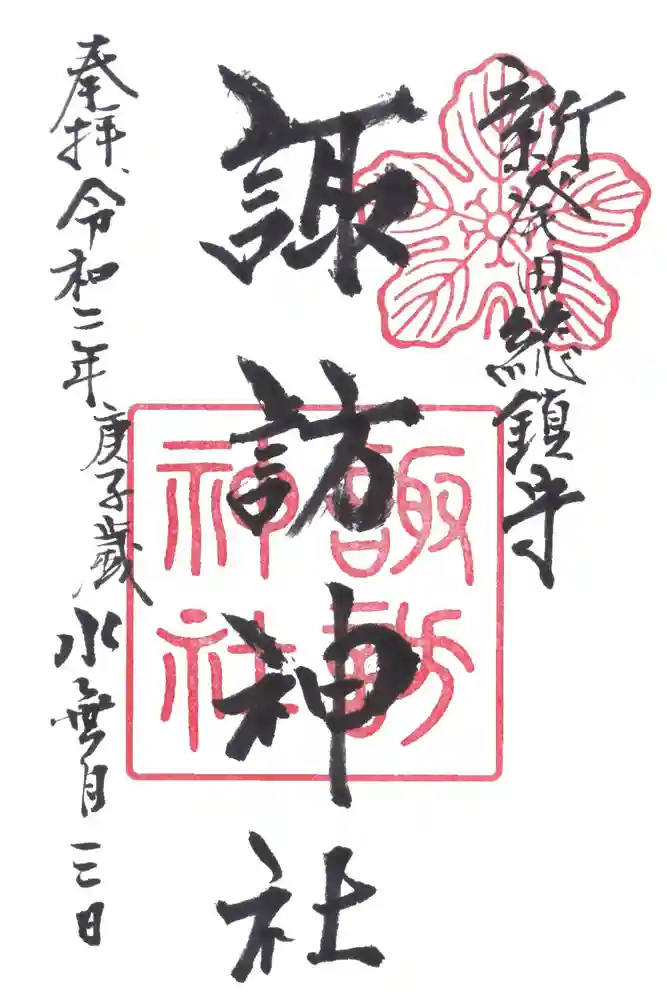 新発田総鎮守
諏訪神社
諏訪
神社
奉拝、令和二年庚子歳水無月三日